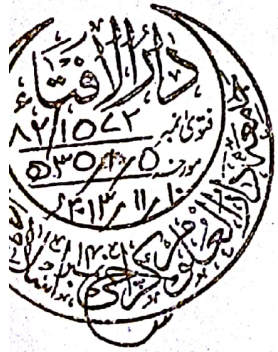 دارالافتاء
فتویٰ نمبر ۸۲/۱۵۷۲
مورخہ ۵/۱/۳۵ھ
۱۰/۱۱/۲۰۱۳
جامعہ دارالعلوم کراچی